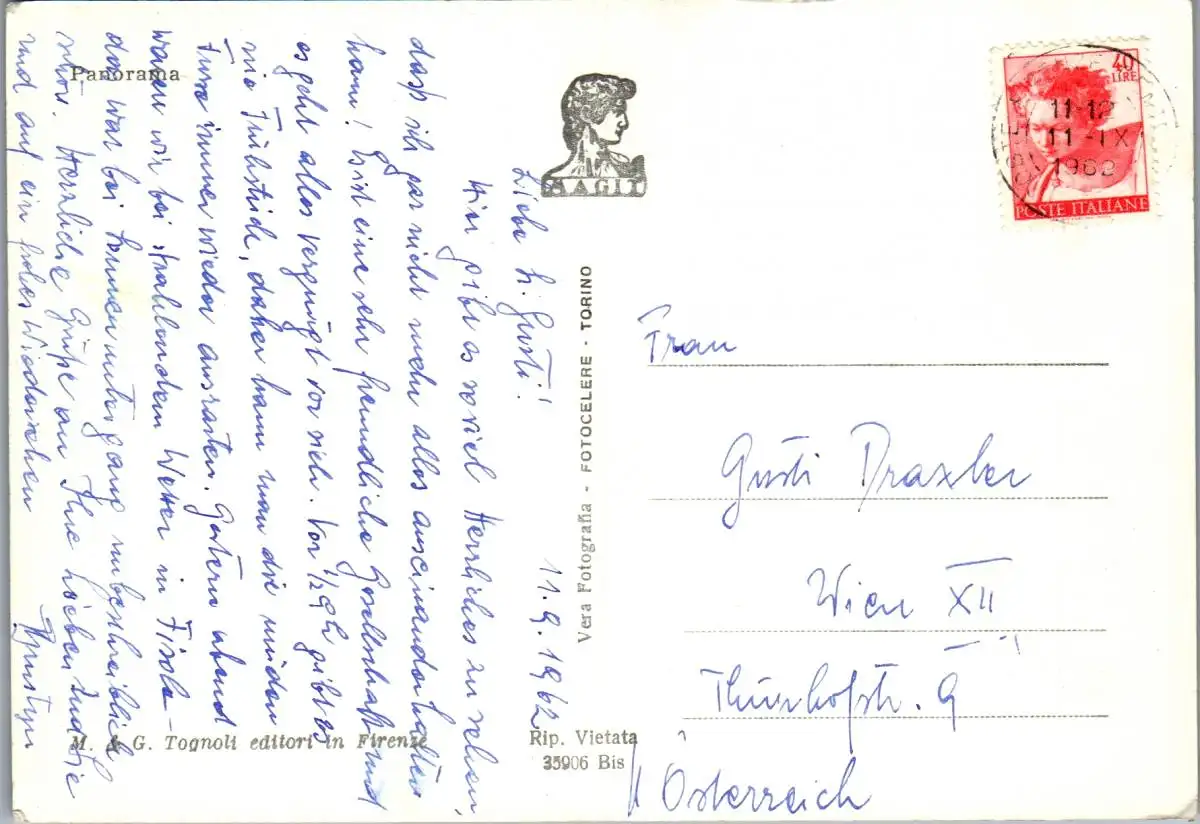 Panorama
SAGIT
40
LIRE
11-12
11 - IX
1962
POSTE ITALIANE
11.9.1962
Liebe L. Gusti!
Hier gibt es soviel Herrliches zu sehen,
dass ich gar nicht mehr alles auseinanderhalten
kann! Es ist eine sehr freundliche Gesellschaft und
es geht alles vergnügt vor sich. Vor ½ 9h gibt es
nie Frühstück, daher kann man die müden
Füsse immer wieder ausrasten. Gestern abend
waren wir bei strahlendem Wetter in Fiesole –
das war bei Sonnenuntergang unbeschreiblich
schön. Herzliche Grüße an Ihre Lieben und Sie
und auf ein frohes Wiedersehen
Vera Fotografia - FOTOCELERE - TORINO
M. & G. Tognoli editori in Firenze
Rip. Vietata
35906 Bis
Frau
Gusti Draxler
Wien XII
9
Österreich